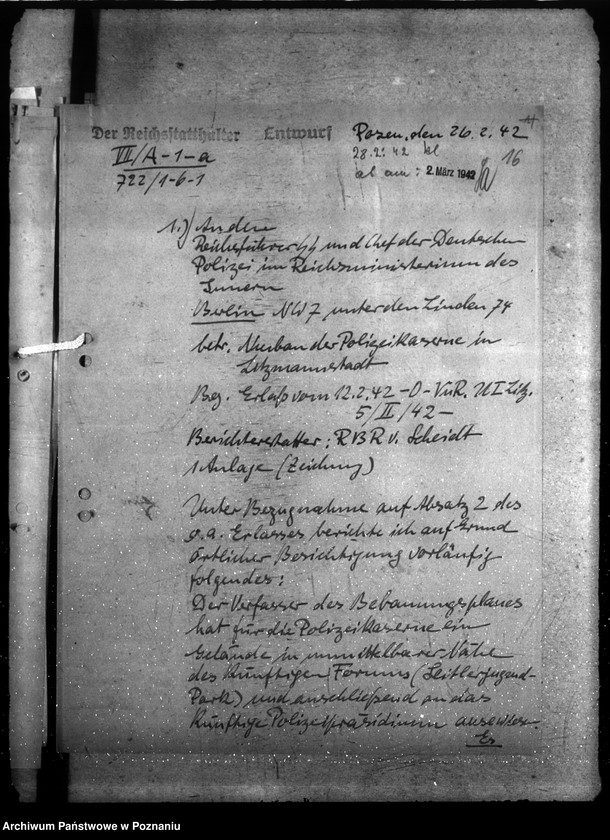 Der Reichsstatthalter Entwurf Posen, den 26.2.42
VII/A-1-a 28.2.42 kl 16
722/1-6-1 ab am: 2. März 1942
1.) An den
Reichsführer SS und Chef der Deutschen
Polizei im Reichsministerium des
Innern
Berlin NW7, unter den Linden 74
betr. Neubau der Polizeikaserne in
Litzmannstadt
Bez. Erlaß vom 12.2.42 -O-VuR. II Litz.
5/II/42-
Berichterstatter: RBR v. Scheidt
1 Anlage (Zeichnung)
Unter Bezugnahme auf Absatz 2 des
o.a. Erlasses berichte ich auf Grund
örtlicher Besichtigung vorläufig
folgendes:
Der Verfasser des Bebauungsplanes
hat für die Polizeikaserne ein
Gelände in unmittelbarer Nähe
des künftigen Forums (Hitlerjugend-
Park) und anschließend an das
künftige Polizeipräsidium ausersehen.
Es
Archiwum Państwowe w Poznaniu